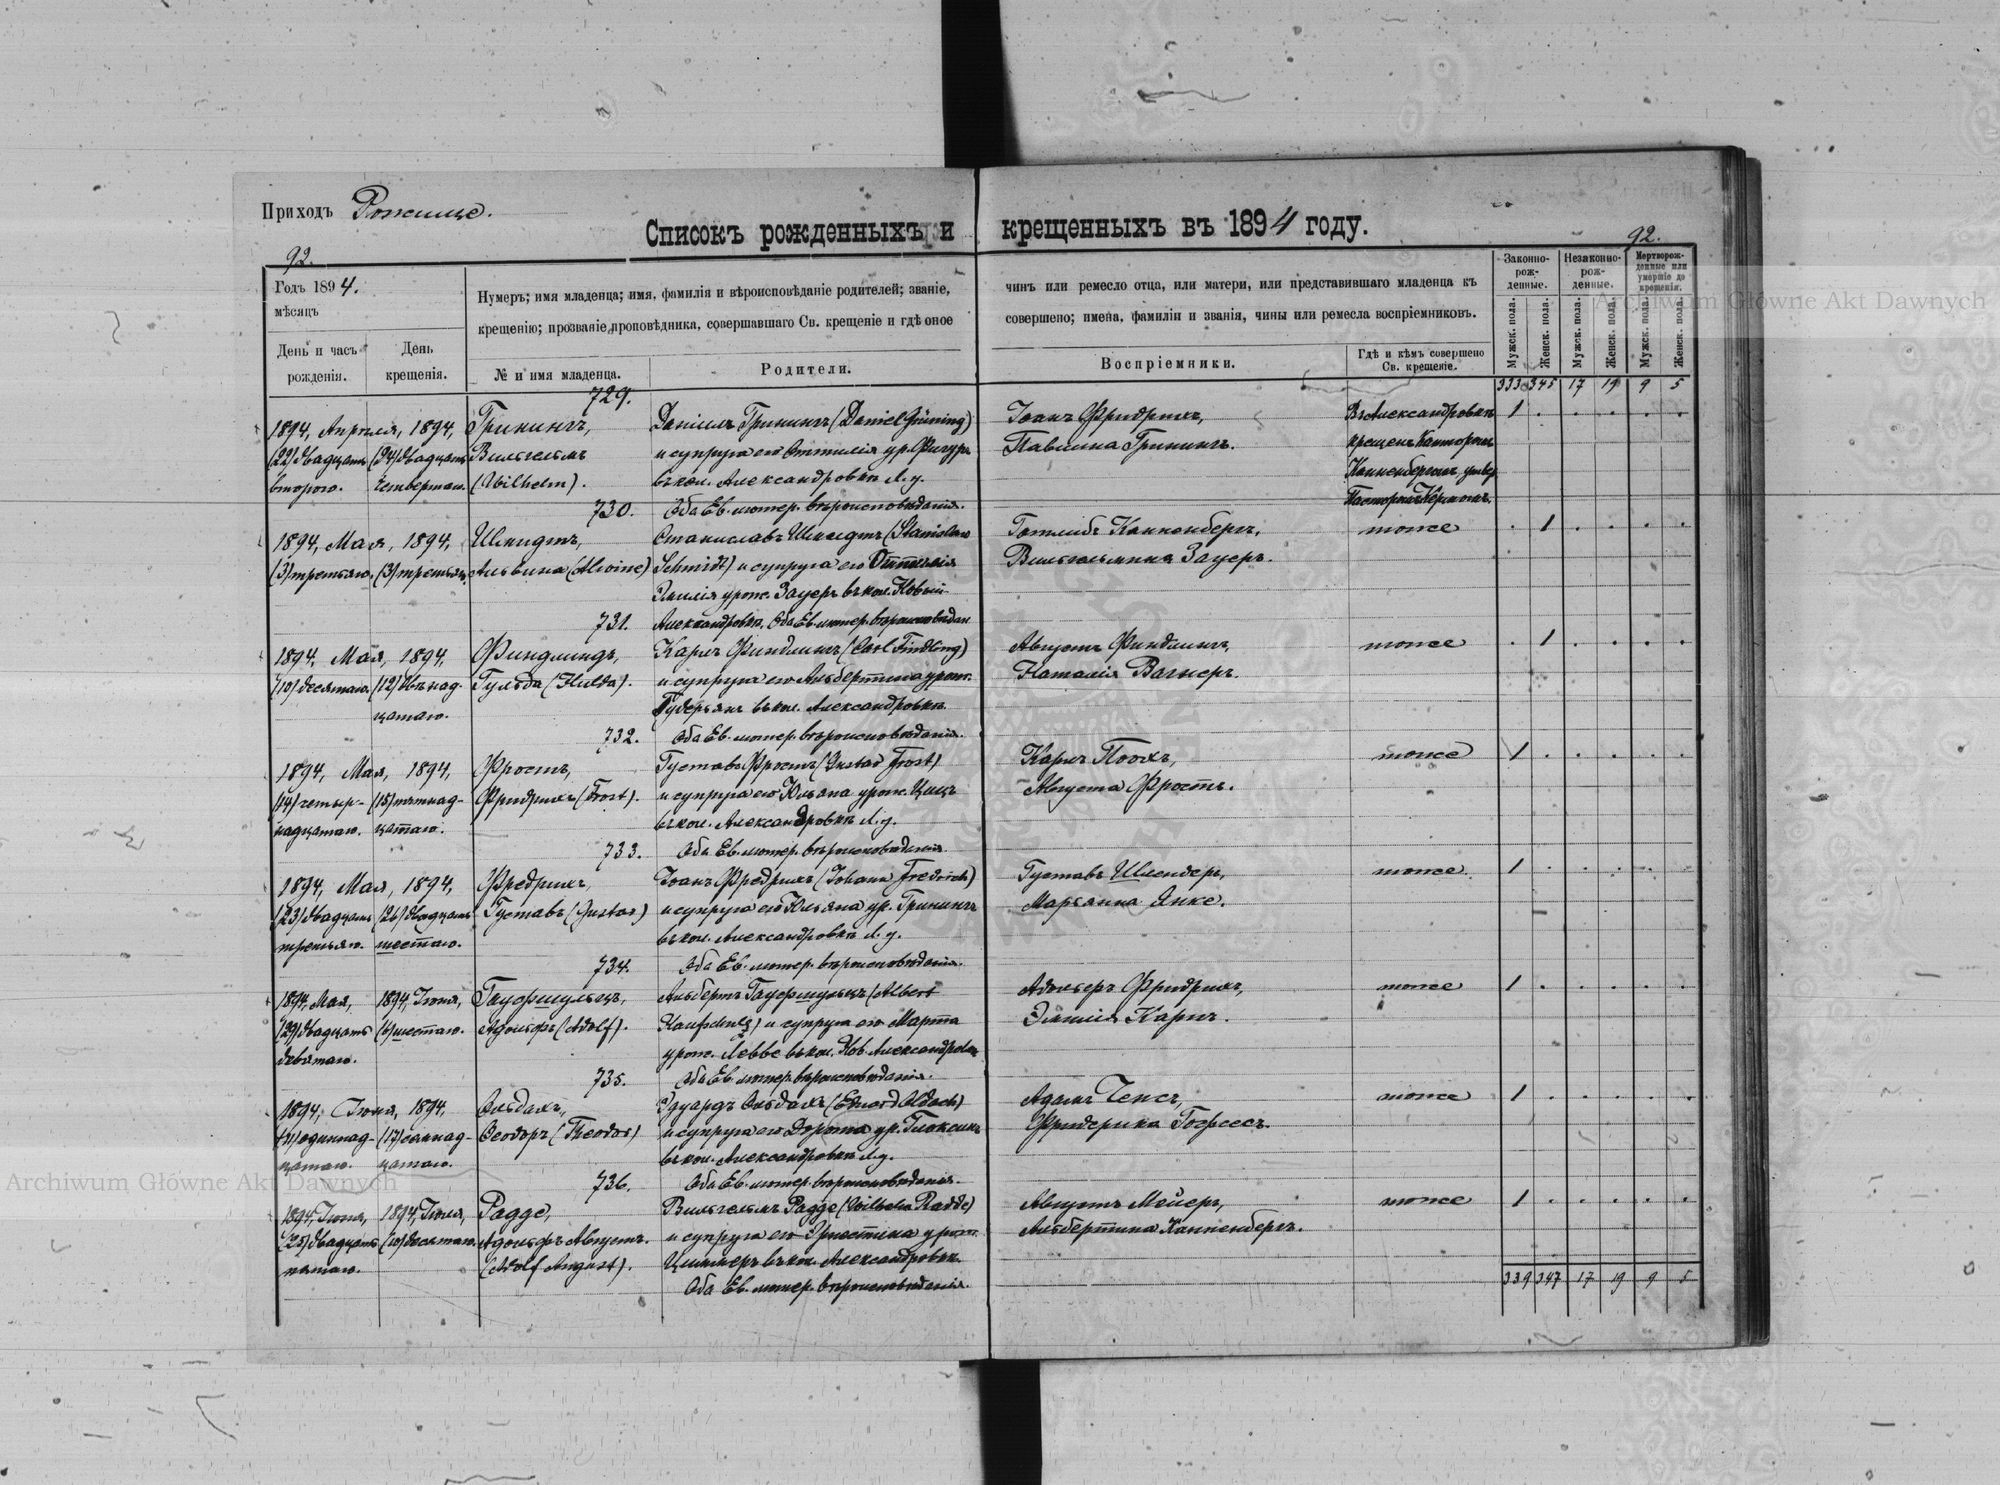 Приходъ Рожище.
Списокъ рожденныхъ и крещенныхъ въ 1894 году.
92.
92.
Годъ 1894.
мѣсяцъ
День и часъ рожденія.
День крещенія.
Нумеръ; имя младенца; имя, фамилія и вѣроисповѣданіе родителей; званіе, чинъ или ремесло отца, или матери, или представившаго младенца къ
крещенію; прозваніе проповѣдника, совершавшаго Св. крещеніе и гдѣ оное совершено; имена, фамиліи и званія, чины или ремесла воспріемниковъ.
№ и имя младенца.
Родители.
Воспріемники.
Гдѣ и кѣмъ совершено Св. крещеніе.
Законно-рож-денные.
Незаконно-рож-денные.
Мертворож-денные или умершіе до крещенія.
Мужск. пола.
Женск. пола.
Мужск. пола.
Женск. пола.
Мужск. пола.
Женск. пола.
333 345 17 19 9 5
729.
1894, Апрѣля, 1894,
(22) двадцать второго.
(24) двадцать четвертаго.
Грининъ,
Вильгельмъ
(Wilhelm).
Данiилъ Грининъ (Daniel Grüning)
и супруга его Оттилія ур.
въ кол. Александровкѣ Л. у.
Оба Ев. лютер. вѣроисповѣданія.
Іоанъ Фридрихъ,
Павлина Гринингъ.
Въ Александровкѣ
крещенъ Канторомъ
Канненбергомъ, утвер.
Пасторомъ Керномъ.
1 . . . . .
730.
1894, Мая, 1894,
(3) третьяго. (3) третьяго.
Шмидтъ,
Альвина (Alwine)
Станиславъ Шмидтъ (Stanislaw
Schmidt) и супруга его Оттилія
Эмилія урож. Зауеръ въ кол. Новой
Александровкѣ. Оба Ев. лютер. вѣроисповѣдан
Готлибъ Канненбергъ,
Вильгельмина Зауеръ.
тоже
. 1 . . . .
731.
1894, Мая, 1894,
(10) десятаго. (12) двѣнад-
цатаго.
Финдлингъ,
Гульда (Hulda).
Карлъ Финдлингъ (Carl Findling)
и супруга его Альбертина урож.
Гудерьянъ въ кол. Александровкѣ
Оба Ев. лютер. вѣроисповѣданія.
Августъ Финдлингъ,
Наталія Вагнеръ.
тоже
. 1 . . . .
732.
1894, Мая, 1894,
(14) четыр-
надцатаго.
(15) пятнад-
цатаго.
Фростъ,
Фридрихъ (Frost).
Густавъ Фростъ (Gustav Frost)
и супруга его Юльяна урож. Цицъ
въ кол. Александровкѣ Л. у.
Оба Ев. лютер. вѣроисповѣданія
Карлъ Поохъ,
Августа Фростъ.
тоже
1 . . . . .
733.
1894, Мая, 1894,
(23) двадцать третьяго.
(26) двадцать шестаго.
Фредрихъ,
Густавъ (Gustav)
Іоанъ Фредрихъ (Johann Fredrich)
и супруга его Юльяна ур. Грининъ
въ кол. Александровкѣ Л. у.
Оба Ев. лютер. вѣроисповѣданія.
Густавъ Шлендеръ,
Марьянна Янке.
тоже
1 . . . . .
734.
1894, Мая, 1894, Іюня,
(29) двадцать девятаго.
(6) шестаго.
Гауфшульцъ,
Адольфъ (Adolf).
Альбертъ Гауфшульцъ (Albert
Haufschulz) и супруга его Марта
урож. Левве въ кол. Нов. Александровкѣ
Оба Ев. лютер. вѣроисповѣданія.
Адольфъ Фридрихъ,
Эмилія Карлъ.
тоже
1 . . . . .
735.
1894, Іюня, 1894,
(11) одиннад-
цатаго.
(17) семнад-
цатаго.
Ольдахъ,
Ѳеодоръ (Theodor)
Эдуардъ Ольдахъ (Eduard Oldach)
и супруга его Дорота ур. Глоксинъ
въ кол. Александровкѣ Л. у.
Оба Ев. лютер. вѣроисповѣданія.
Адамъ Ченсъ,
Фридерика
тоже
1 . . . . .
736.
1894, Іюня, 1894, Іюля,
(25) двадцать пятаго.
(10) десятаго.
Радде,
Адольфъ Августъ.
(Adolf August).
Вильгельмъ Радде (Wilhelm Radde)
и супруга его Эрнестина урож.
Циммеръ въ кол. Александровкѣ.
Оба Ев. лютер. вѣроисповѣданія.
Августъ Мейеръ,
Альбертина Канненбергъ.
тоже
1 . . . . .
339 347 17 19 9 5
Archiwum Główne Akt Dawnych
Archiwum Główne Akt Dawnych